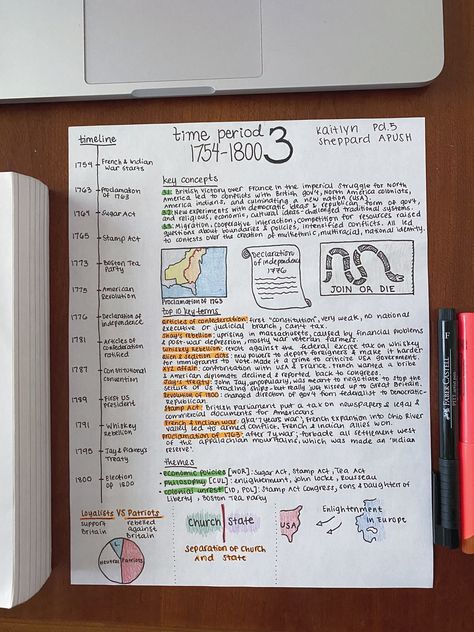 time period 3
1754-1800
Kaitlyn Pd.5
Sheppard APUSH
timeline
1754 French & Indian War starts
1763 Proclamation of 1763
1764 Sugar Act
1765 Stamp Act
1773 Boston Tea Party
1775 American Revolution
1776 Declaration of Independence
1781 Articles of Confederation ratified
1787 Constitutional Convention
1789 First US President
1791 Whiskey Rebellion
1795 Jay & Pinckney's Treaty
1800 Election of 1800
key concepts
3.1: British victory over France in the imperial struggle for North
America led to conflicts with British gov't, North America colonists,
America Indians, and culminating a new nation (USA).
3.2: New experiments with democratic ideas & republican form of gov't,
and religious, economic, cultural ideas - challenged traditional systems...
3.3: Migration, cooperative interaction, competition for resources raised
questions about boundaries & policies, intensified conflicts. All led
to contests over the creation of multiethnic, multiracial, national identity.
Proclamation of 1763
Declaration
of independence
1776
JOIN or DIE
top 10 key terms
articles of confederation: first "constitution", very weak, no national
executive or judicial branch, can't tax.
shay's rebellion: uprising in massachusetts, caused by financial problems
& post-war depression, mostly war veteran farmers.
whiskey rebellion: revolt against the federal excise tax on whiskey
alien & sedition acts: new powers to deport foreigners & made it harder
for immigrants to vote. Made it a crime to criticize USA government.
XYZ affair: confrontation with USA & France. French wanted a bribe
& American diplomats declined & reported back to congress.
Jay's treaty: John Jay, unpopularly, was meant to negotiate to stop the
seizure of US trading ships - but really just kissed up to Great Britain.
revolution of 1800: changed direction of gov't from federalist to democratic-
republican.
Stamp Act: British parliament put a tax on newspapers & legal &
commercial documents for Americans
French & Indian war: aka '7 years war'; French expansion into Ohio River
valley led to armed conflict. French & Indian allies won.
Proclamation of 1763: after '7 y war'; forbade all settlement west
of the appalachian mountains, which was made an 'indian
reserve'.
themes
• economic policies [WOR]: Sugar Act, Stamp Act, Tea Act
• philosophy [CUL]: enlightenment, John Locke, Rousseau
• colonial unrest [ID, POL]: Stamp Act Congress, Sons & Daughter of
Liberty, Boston Tea Party
Loyalists VS Patriots
support Britain
rebelled against Britain
Neutral
Patriots
Church State
separation of Church
and State
USA
Enlightenment
in Europe
FABER-CASTELL